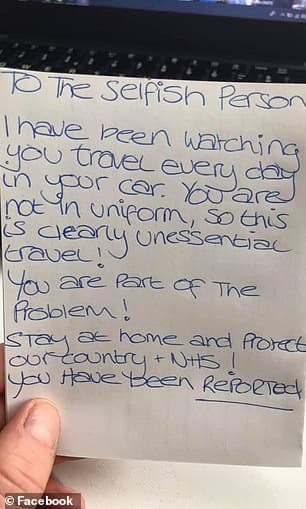 To The Selfish Person
I have been watching
you travel every day
in your car. You are
not in uniform, so this
is clearly unessential
travel!
You are Part of The
Problem!
Stay at home and Protect
our country + NHS!
You Have been REPORTED
© Facebook